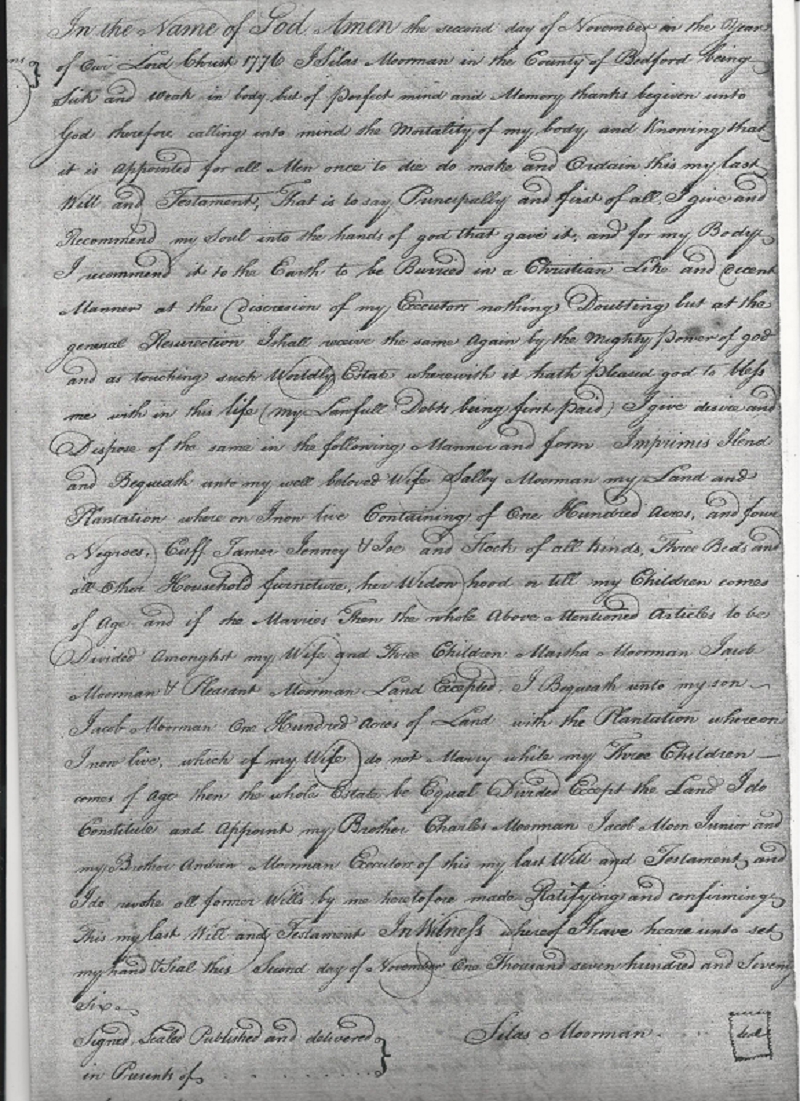 In the Name of God Amen the second day of November in the Year
of Our Lord Christ 1776 I Silas Moorman in the County of Bedford being
Sick and Weak in body but of perfect mind and Memory thanks be given unto
God therefore calling into mind the Mortality of my body and Knowing that
it is Appointed for all Men once to die do make and Ordain this my last
Will and Testament, That is to say Principally and first of all, I give and
Recommend my Soul into the hands of god that gave it, and for my Body
I recommend it to the Earth to be Burried in a Christian Like and decent
Manner at the discresion of my Executors nothing Doubting but at the
general Resurection I shall receive the same Again by the Mighty Power of god
and as touching such Worldly Estate wherewith it hath pleased god to bless
me with in this life (my Lawfull Debts being first paid) I give desire and
Dispose of the same in the following Manner and form Imprimis I lend
and Bequeath unto my well beloved Wife Salley Moorman my Land and
Plantation where on I now live Containing of One Hundred Acres, and four
Negroes, Cuff Tamer Jenney & Joe and Stock of all kinds, Three Beds and
all Other Household furneture, her Widow hood or till my Children comes
of Age and if she Marries Then the whole Above Mentioned Articles to be
Divided Amonghst my Wife and Three Children Martha Moorman Jacob
Moorman & Pleasant Moorman Land Excepted, I Bequeath unto my son
Jacob Moorman One Hundred Acres of Land with the Plantation whereon
I now live, which if my Wife do not Marry while my Three Children
comes of Age then the whole Estate be Equal Divided Except the Land I do
Constitute and Appoint my Brother Charles Moorman Jacob Moon Junior and
my Brother Andrew Moorman Executors of this my last Will and Testament, and
I do revoke all former Wills by me heretofore made Ratifying and confirming
This my last Will and Testament In Witness whereof I have heare unto set
my hand & Seal this Second day of November One Thousand seven hundred and Seventy
Six
Signed, Sealed Published and delivered } Silas Moorman . . . . Seal
in Presents of . . . . . . . .